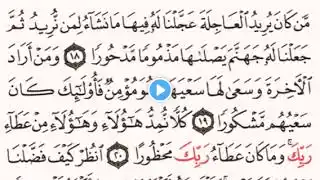 مَّن كَانَ يُرِيدُ ٱلْعَاجِلَةَ عَجَّلْنَا لَهُۥ فِيهَا مَا نَشَآءُ لِمَن نُّرِيدُ ثُمَّ
جَعَلْنَا لَهُۥ جَهَنَّمَ يَصْلَىٰهَا مَذْمُومًا مَّدْحُورًا ١٨ وَمَنْ أَرَادَ
ٱلْأَخِرَةَ وَسَعَىٰ لَهَا سَعْيَهَا وَهُوَ مُؤْمِنٌ فَأُو۟لَٰٓئِكَ كَانَ
سَعْيُهُم مَّشْكُورًا ١٩ كُلًّا نُّمِدُّ هَٰٓؤُلَآءِ وَهَٰٓؤُلَآءِ مِنْ عَطَآءِ
رَبِّكَ ۚ وَمَا كَانَ عَطَآءُ رَبِّكَ مَحْظُورًا ٢٠ ٱنظُرْ كَيْفَ فَضَّلْنَا